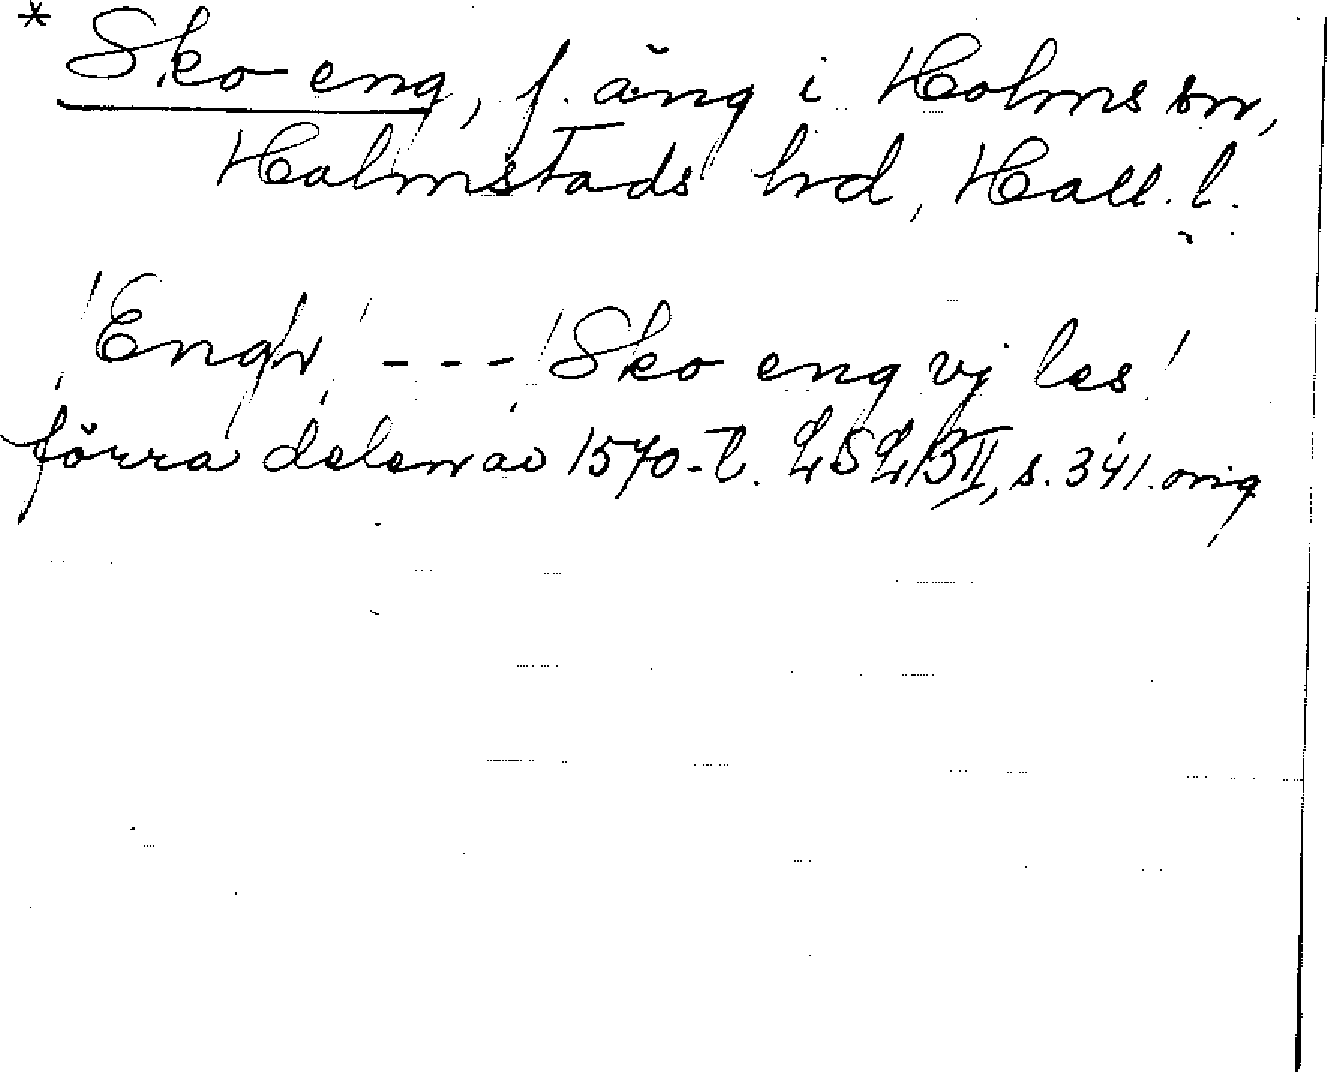 * Sko eng, f. äng i Holms sn,
Halmstads hd, Hall. l.
'Engh' --- 'Sko eng vj les'
förra delen av 1570-t. LSLB II, s. 341. orig